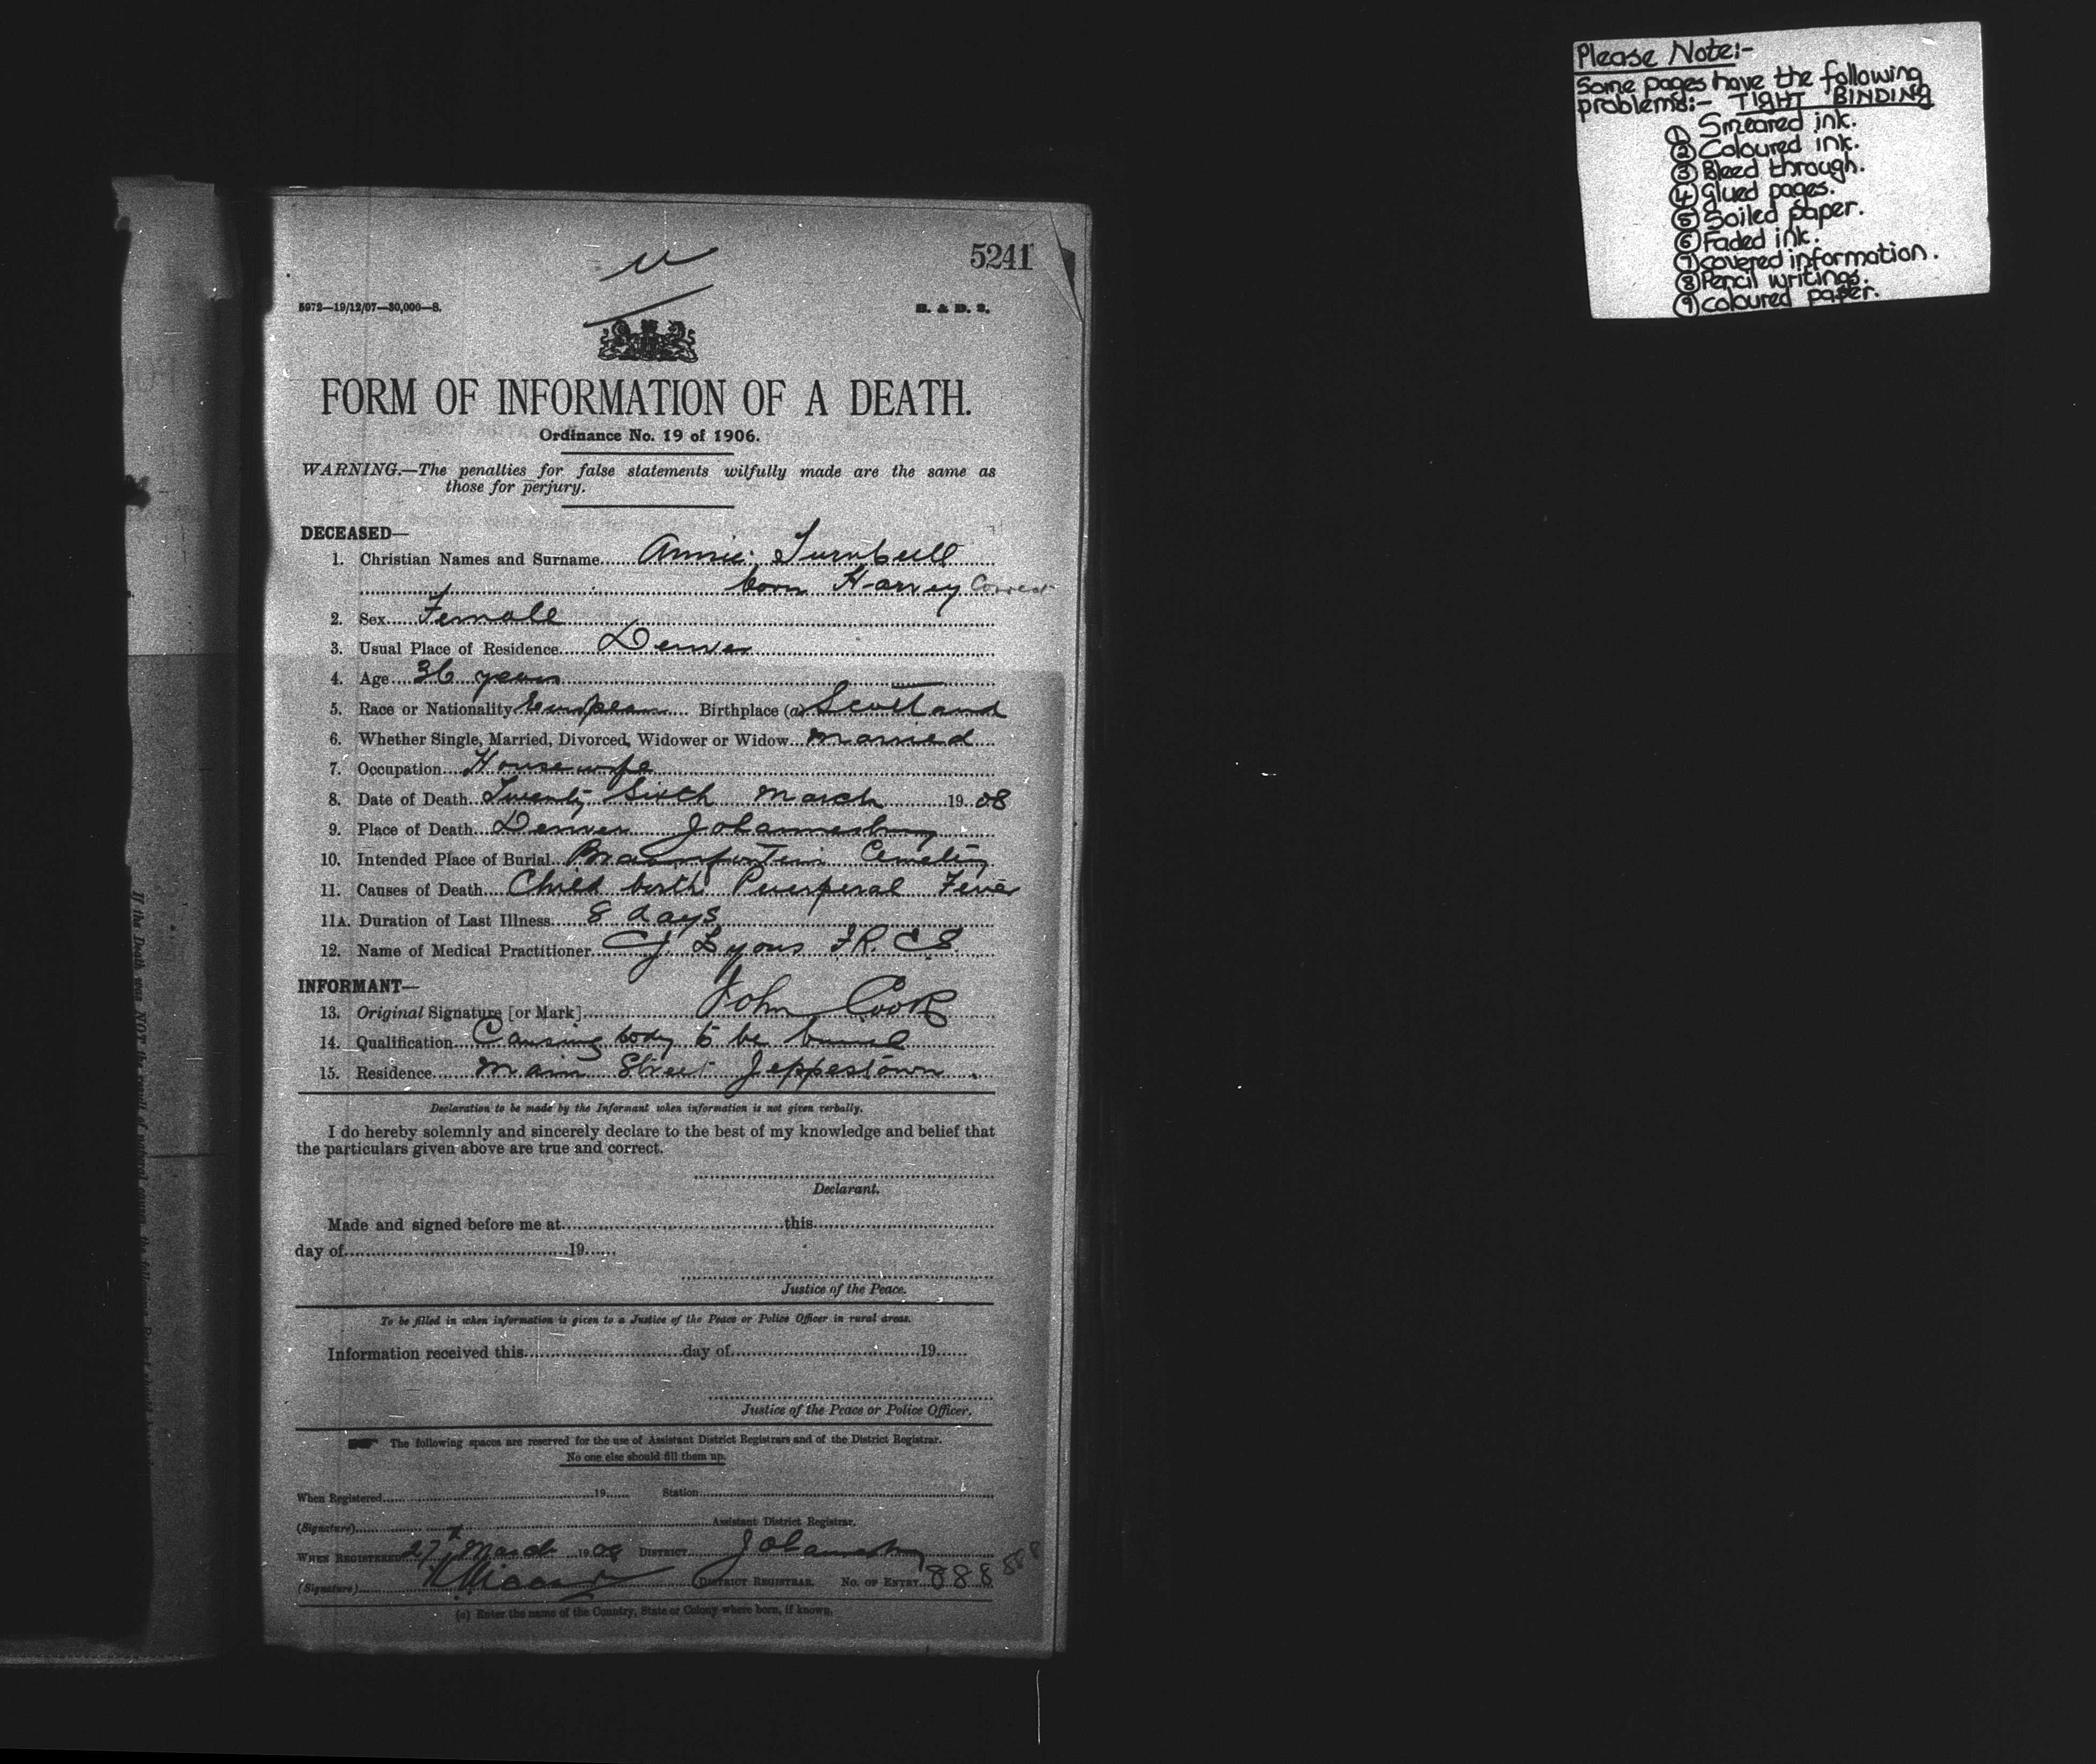 Please Note:-
Some pages have the following
problems:- TIGHT BINDING
① Smeared ink.
② Coloured ink.
③ Bleed through.
④ Glued pages.
⑤ Soiled paper.
⑥ Faded ink.
⑦ covered information.
⑧ Pencil writings.
⑨ coloured paper.
5241
5972—19/12/07—30,000—S. B. & D. 2.
FORM OF INFORMATION OF A DEATH.
Ordinance No. 19 of 1906.
WARNING.—The penalties for false statements wilfully made are the same as
those for perjury.
DECEASED—
1. Christian Names and Surname Annie Turnbull
born Harvey Correct
2. Sex Female
3. Usual Place of Residence Denver
4. Age 36 years
5. Race or Nationality European Birthplace (a) Scotland
6. Whether Single, Married, Divorced, Widower or Widow married
7. Occupation Housewife
8. Date of Death Twenty Sixth March 19 08
9. Place of Death Denver Johannesburg
10. Intended Place of Burial Braamfontein Cemetery
11. Causes of Death Child birth Puerperal Fever
11A. Duration of Last Illness 8 days
12. Name of Medical Practitioner CJ Lyons F.R.C.S.
INFORMANT—
13. Original Signature [or Mark] John Cook
14. Qualification Causing body to be buried
15. Residence Main Street Jeppestown
Declaration to be made by the Informant when information is not given verbally.
I do hereby solemnly and sincerely declare to the best of my knowledge and belief that
the particulars given above are true and correct.
Declarant.
Made and signed before me at this
day of 19
Justice of the Peace.
To be filled in when information is given to a Justice of the Peace or Police Officer in rural areas.
Information received this day of 19
Justice of the Peace or Police Officer.
The following spaces are reserved for the use of Assistant District Registrars and of the District Registrar.
No one else should fill them up.
When Registered 19 Station
(Signature) Assistant District Registrar.
WHEN REGISTERED 27th March 1908 DISTRICT Johannesburg
(Signature) DISTRICT REGISTRAR. NO. OF ENTRY 888 888
(a) Enter the name of the Country, State or Colony where born, if known.